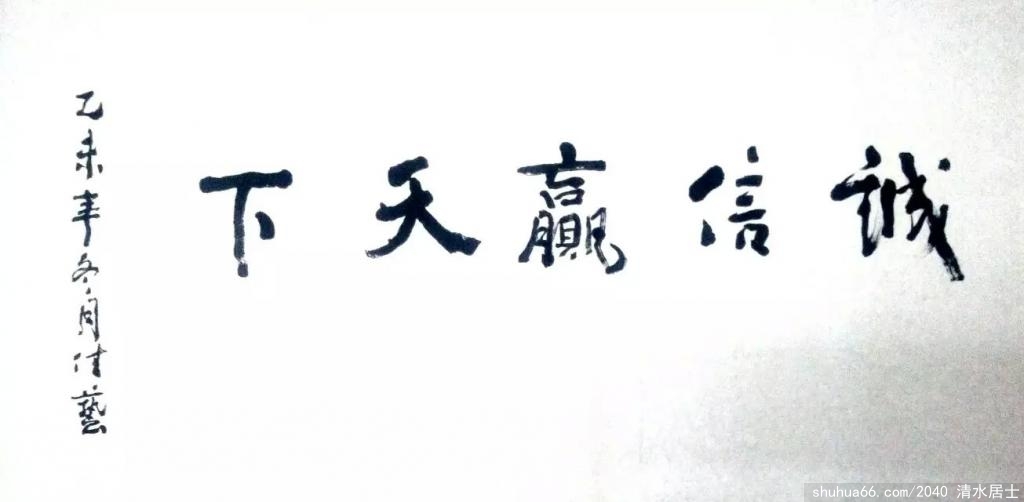 誠信贏天下
乙未年冬月佳藝
shuhua66.com/2040 清水居士